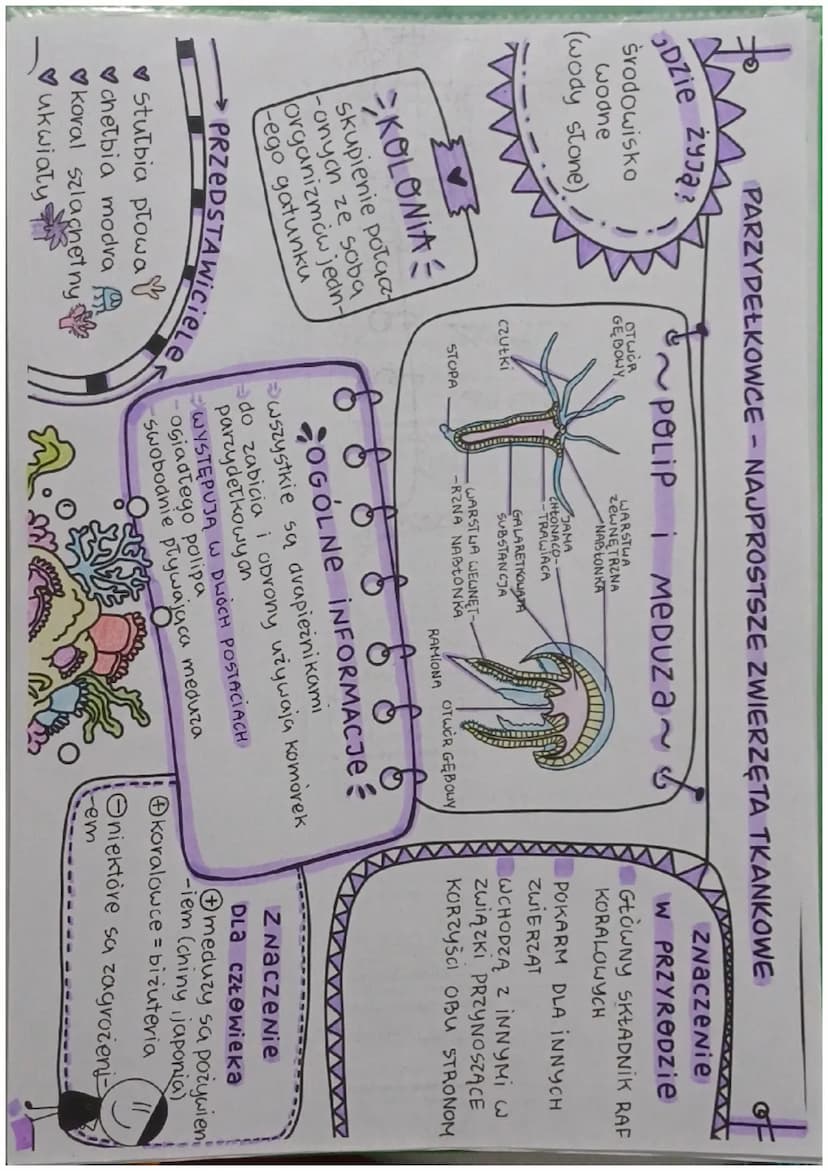 PARZYDEŁKOWCE - NAJPROSTSZE ZWIERZĘTA TKANKOWE
GDZIE ŻYJĄ?
ŚRODOWISKO
WODNE
(WODY SŁONE)
~POLIP i MEDUZA~
OTWÓR
GĘBOWY
CZUŁKI
STOPA
WARSTWA
ZEWNĘTRZNA
NABŁONKA
JAMA
CHŁONĄCO-
-TRAWIĄCA
GALARETKOWATA
SUBSTANCJA
WARSTWA WEWNĘT-
-RZNA NABŁONKA
RAMIONA
OTWÓR GĘBOWY
ZNACZENIE
W PRZYRODZIE
GŁÓWNY SKŁADNIK RAF
KORALOWYCH
POKARM DLA INNYCH
ZWIERZĄT
WCHODZĄ Z INNYMI W
ZWIĄZKI PRZYNOSZĄCE
KORZYŚCI OBU STRONOM
KOLONIA
skupienie połącz-
-onych ze sobą
organizmów jedn-
-ego gatunku
OGÓLNE INFORMACJE
⇒ wszystkie są drapieżnikami
⇒ do zabicia i obrony używają komórek
parzydełkowych
⇒ WYSTĘPUJĄ W DWÓCH POSTACIACH
- osiadłego polipa
- swobodnie pływająca meduza
→ PRZEDSTAWICIELE
♥ stułbia płowa
♥ chełbia modra
♥ koral szlachetny
♥ ukwiały
ZNACZENIE
DLA CZŁOWIEKA
⊕ meduzy są pożywien
-iem (chiny, japonia)
⊕ koralowce = biżuteria
⊖ niektóre są zagrożeni-
-em